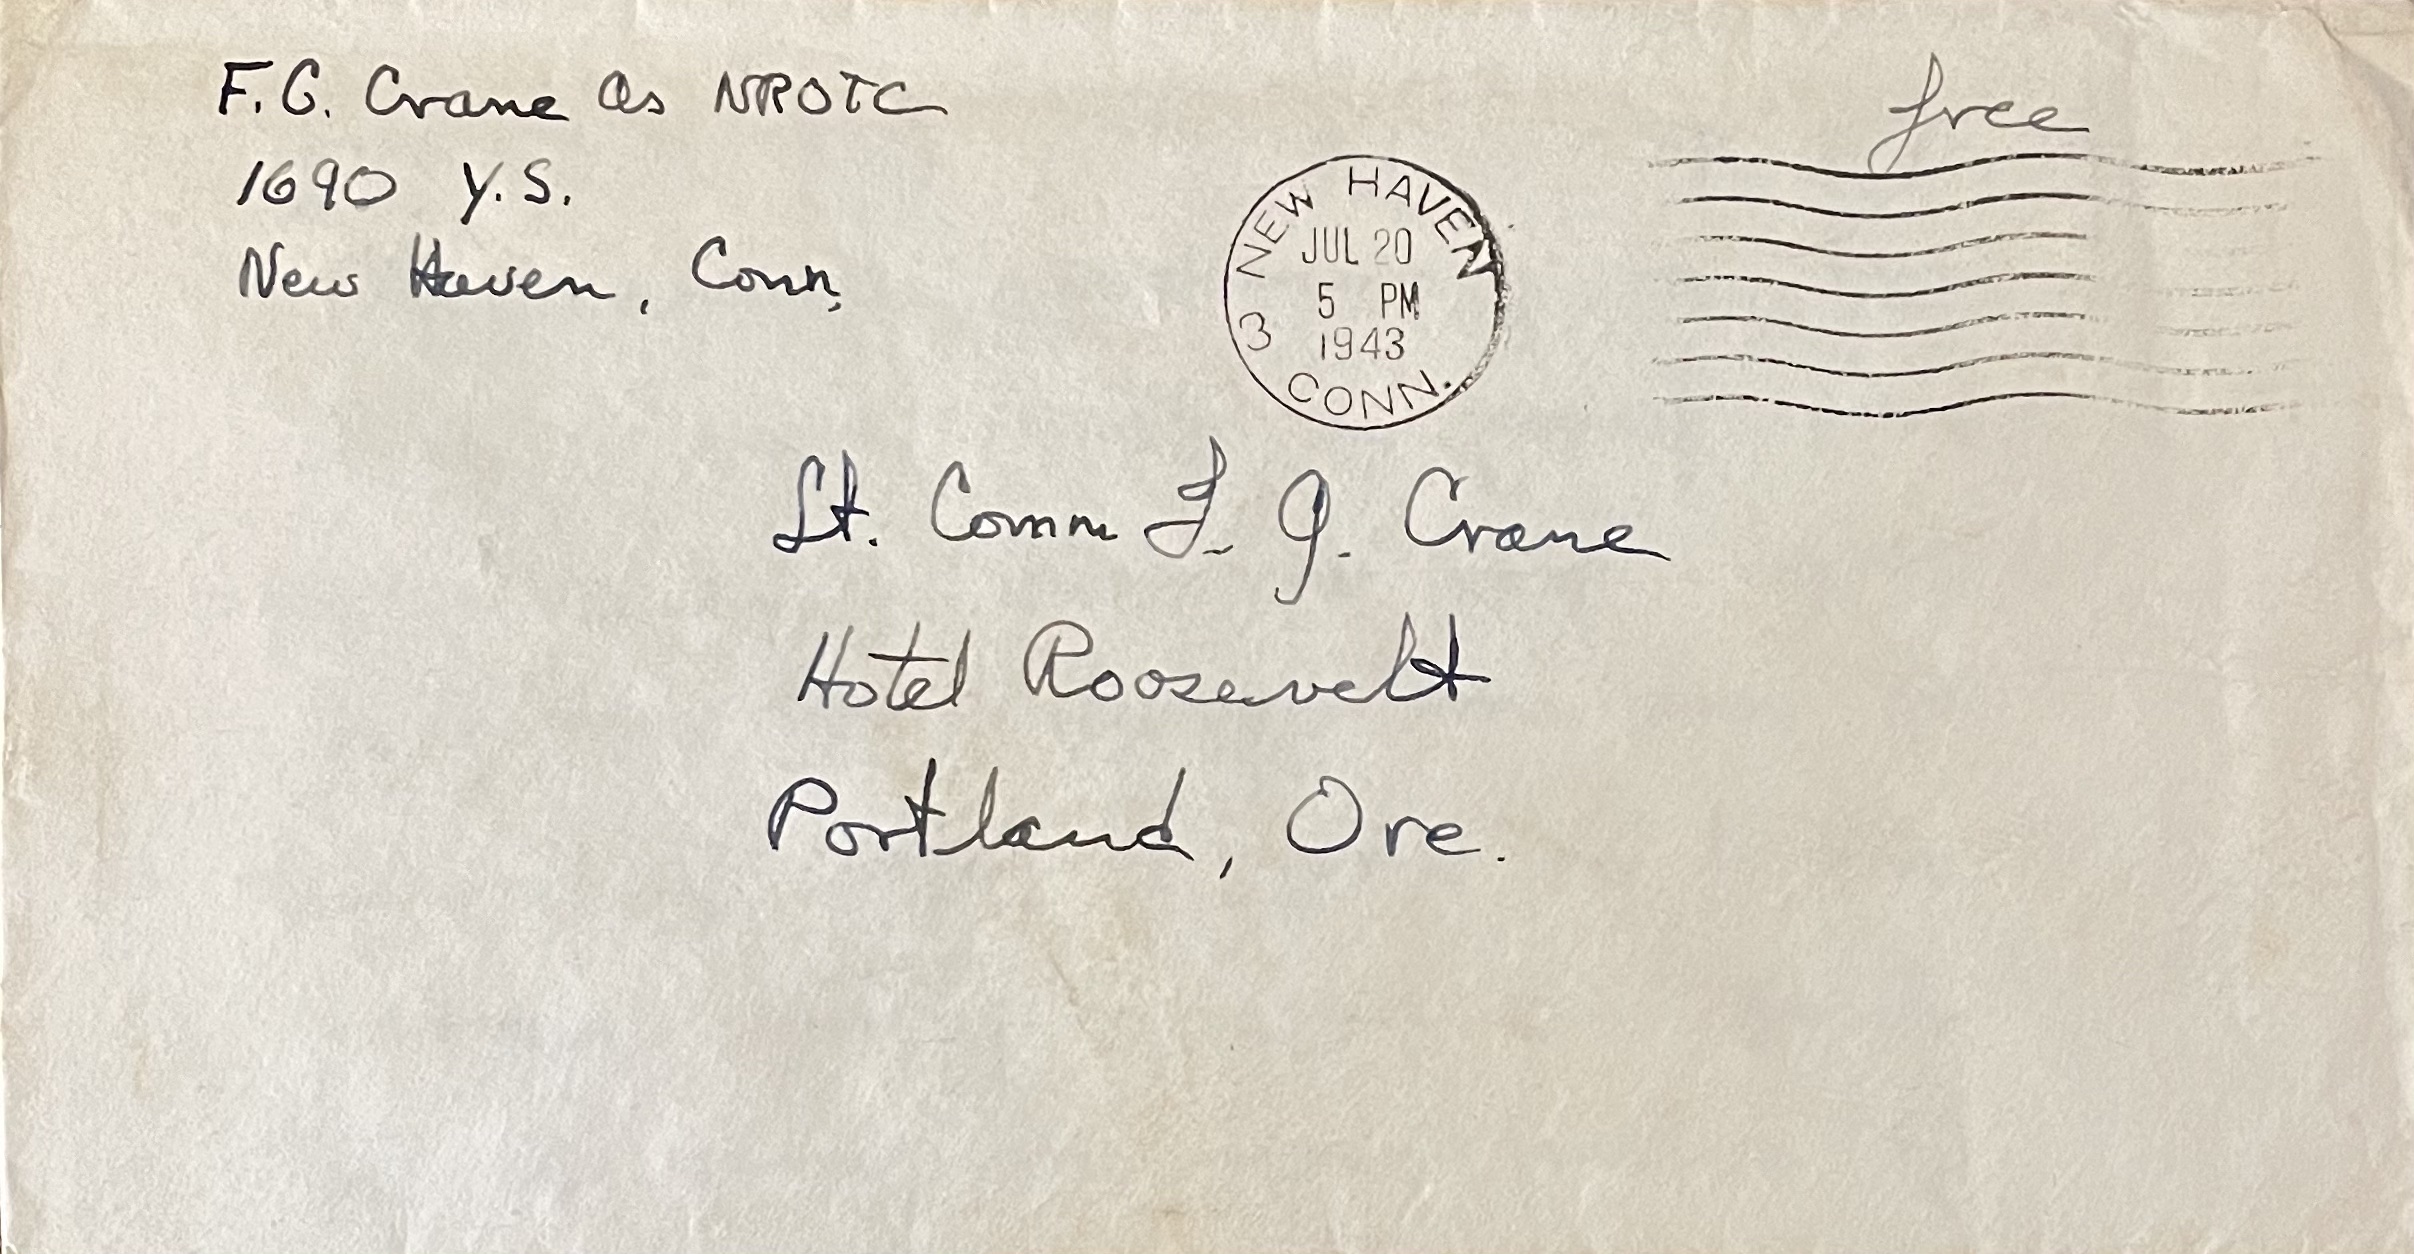 F.G. Crane As NROTC
1690 Y.S.
New Haven, Conn.
free
NEW HAVEN
JUL 20
5 PM
1943
3
CONN.
Lt. Comm F. G. Crane
Hotel Roosevelt
Portland, Ore.